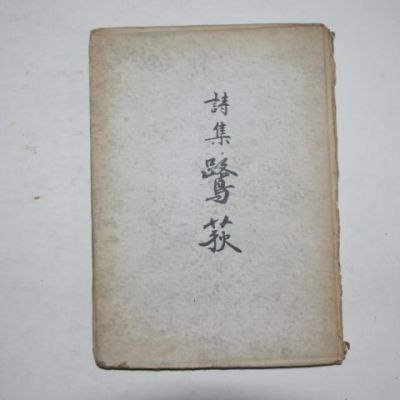 詩集·鷺荻